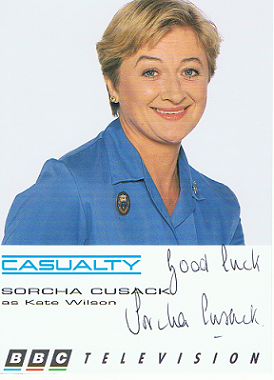 CASUALTY
SORCHA CUSACK
as Kate Wilson
Good Luck
Sorcha Cusack
BBC TELEVISION